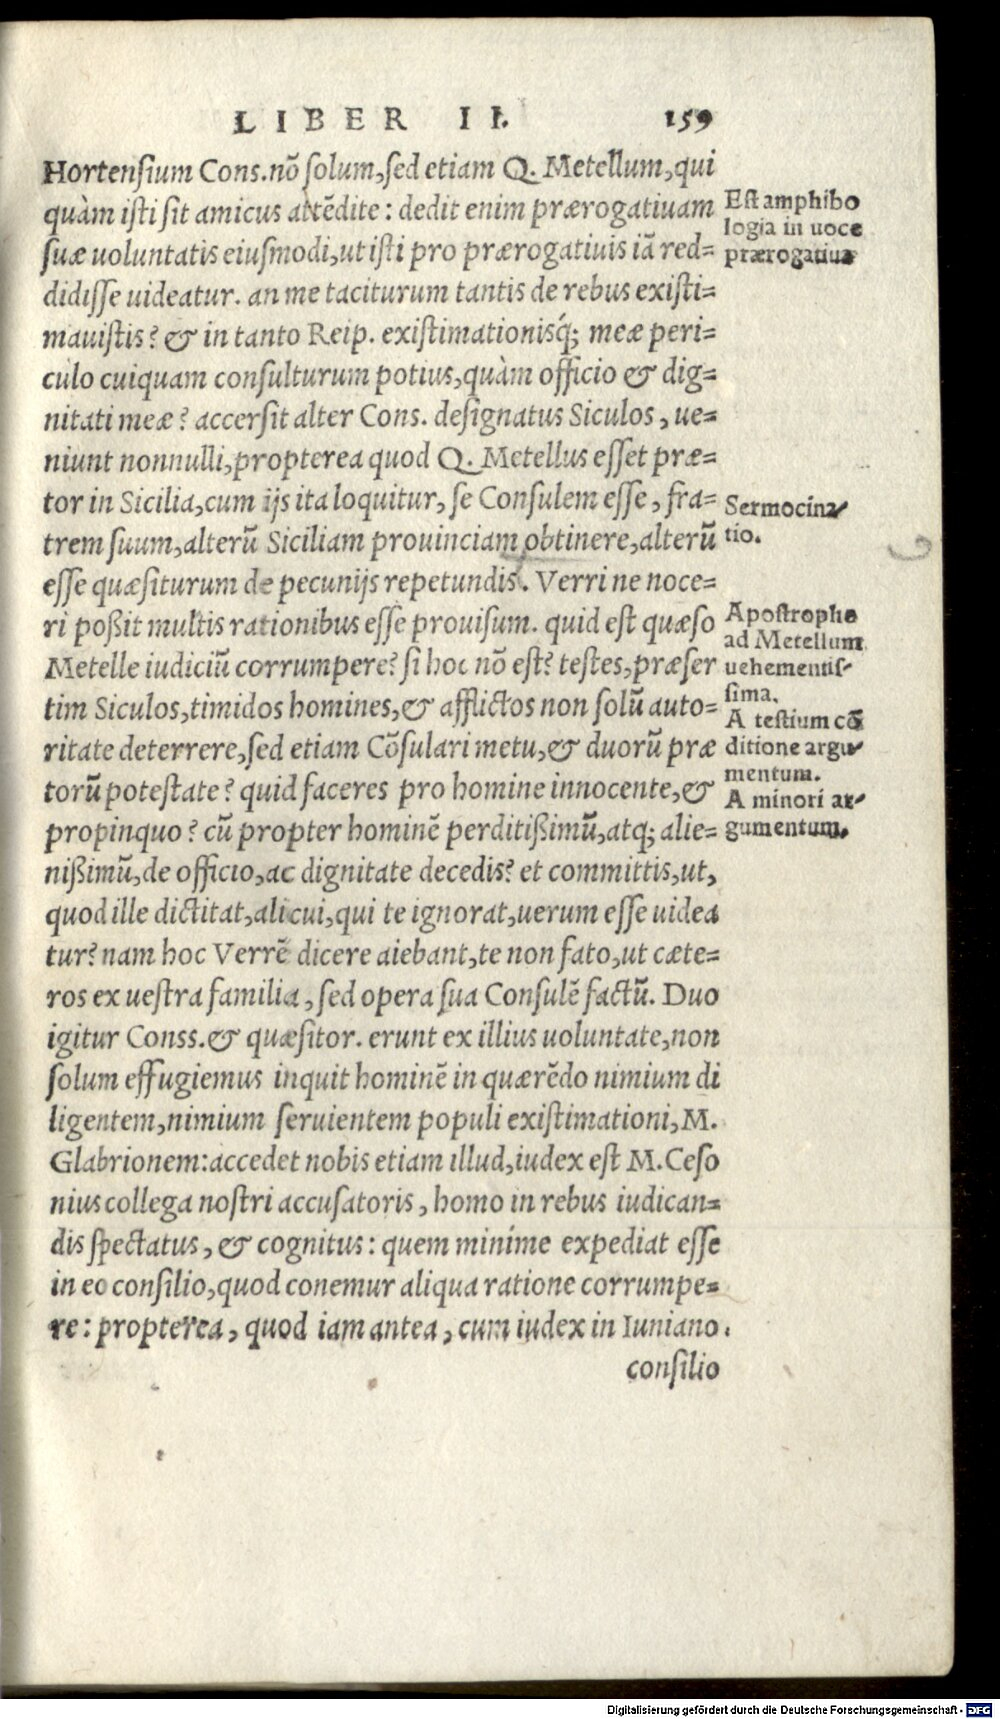 LIBER II. 159
Hortensium Cons.nõ solum,sed etiam Q. Metellum,qui
quàm isti sit amicus attẽdite: dedit enim prærogatiuam
suæ uoluntatis eiusmodi,ut isti pro prærogatiuis iã red=
didisse uideatur. an me taciturum tantis de rebus existi=
mauistis? & in tanto Reip. existimationisq́; meæ peri=
culo cuiquam consulturum potius,quàm officio & dig=
nitati meæ? accersit alter Cons. designatus Siculos, ue=
niunt nonnulli,propterea quod Q. Metellus esset præ=
tor in Sicilia,cum ijs ita loquitur, se Consulem esse, fra=
trem suum,alterũ Siciliam prouinciam obtinere,alterũ
esse quæsiturum de pecunijs repetundis. Verri ne noce=
ri poßit multis rationibus esse prouisum. quid est quæso
Metelle iudiciũ corrumpere? si hoc nõ est? testes,præser
tim Siculos,timidos homines,& afflictos non solũ auto=
ritate deterrere,sed etiam Cõsulari metu,& duorũ præ
torũ potestate? quid faceres pro homine innocente,&
propinquo? cũ propter hominẽ perditißimũ,atq; alie=
nißimũ,de officio,ac dignitate decedis? et committis,ut,
quod ille dictitat,alicui,qui te ignorat,uerum esse uidea
tur? nam hoc Verrẽ dicere aiebant,te non fato,ut cæte=
ros ex uestra familia, sed opera sua Consulẽ factũ. Duo
igitur Conss.& quæsitor. erunt ex illius uoluntate,non
solum effugiemus inquit hominẽ in quærẽdo nimium di
ligentem,nimium seruientem populi existimationi, M.
Glabrionem:accedet nobis etiam illud,iudex est M.Ceso
nius collega nostri accusatoris, homo in rebus iudican=
dis spectatus, & cognitus: quem minime expediat esse
in eo consilio,quod conemur aliqua ratione corrumpe=
re: propterea, quod iam antea, cum iudex in Iuniano.
consilio
Est amphibo
logia in uoce
prærogatiua
Sermocina
tio.
Apostrophe
ad Metellum
uehementis-
sima.
A testium cõ
ditione argu-
mentum.
A minori ar-
gumentum.
Digitalisierung gefördert durch die Deutsche Forschungsgemeinschaft - DFG